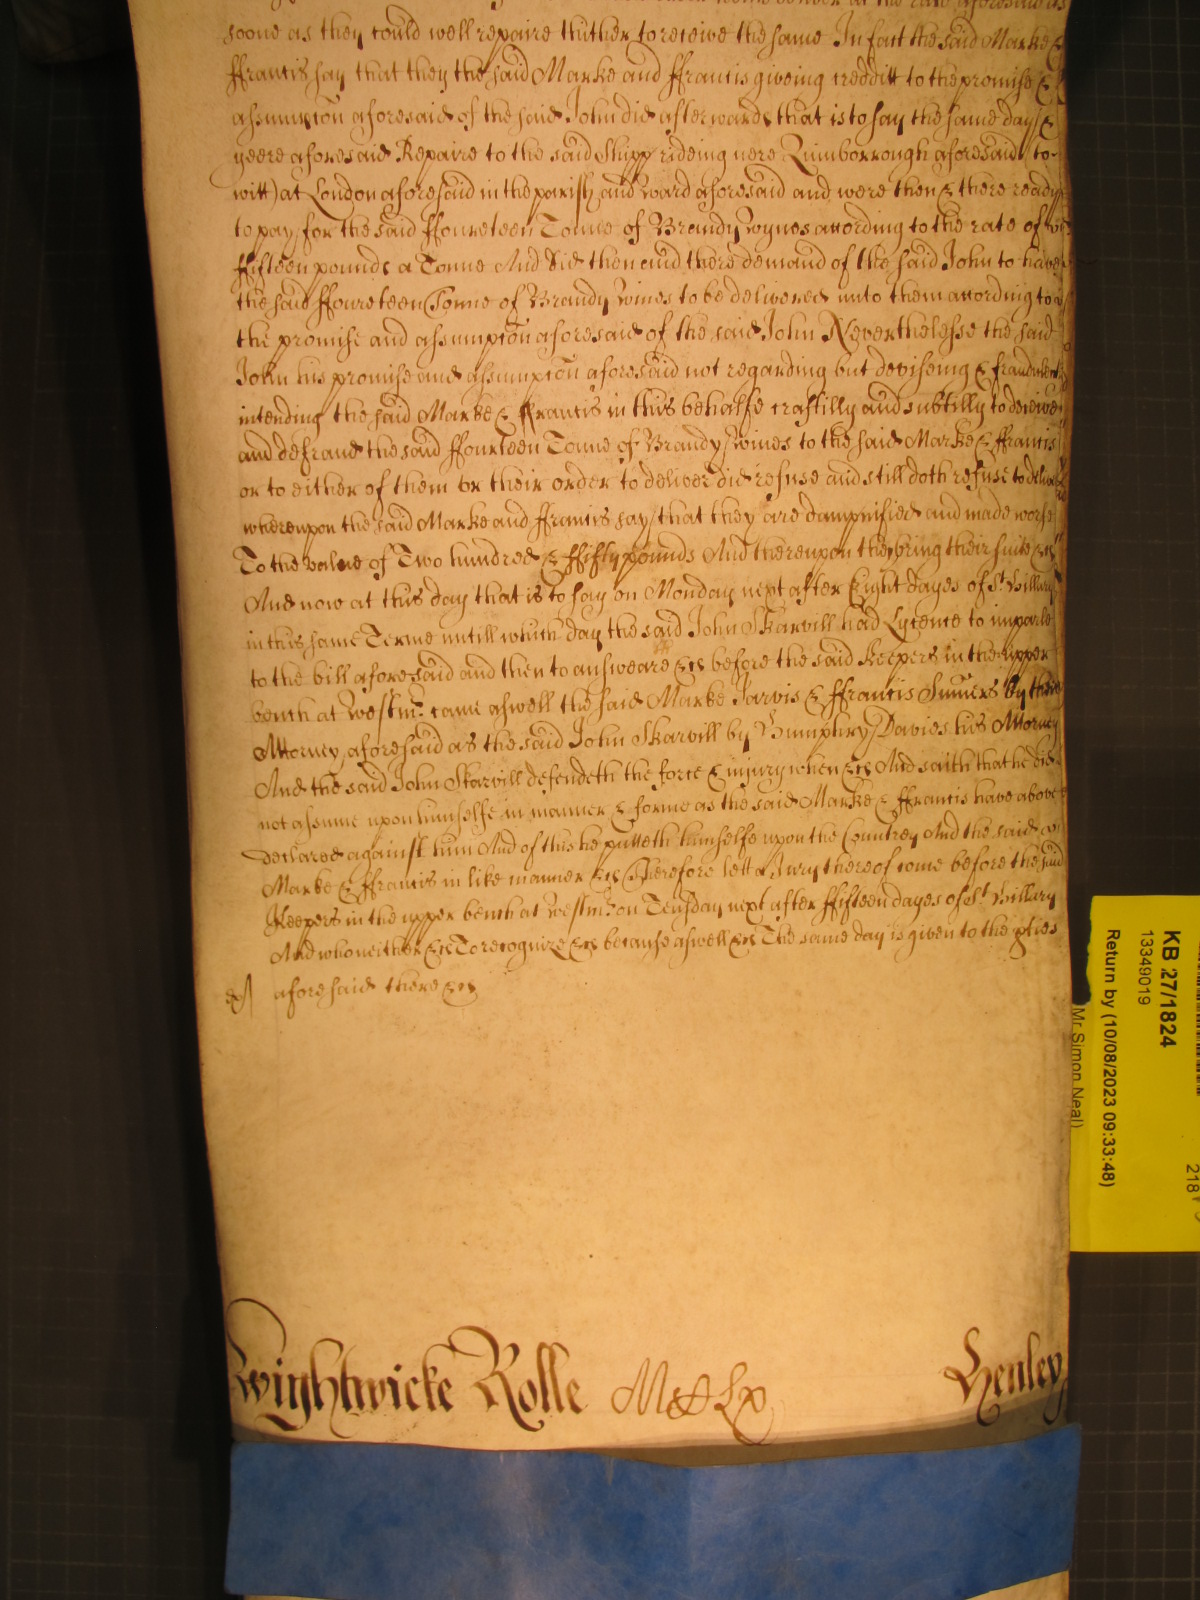 soone as they could well repaire thither to receive the same In fact the said Marke &
ffrancis say that they the said Marke and ffrancis giveing creditt to the promise &
assumpcõn aforesaid of the said John did afterwards that is to say the same day &
yeere aforesaid Repaire to the said Shipp rideing nere Quinborrough aforesaid (to
witt) at London aforesaid in the parish and Ward aforesaid and were then & there ready
to pay for the said ffoureteen Tonne of Brandy Wynes according to the rate of
ffifteen pounds a Tonne And did then and there demand of the said John to have
the said ffoureteen Tonne of Brandy Wines to be delivered unto them according to
the promise and assumpcõn aforesaid of the said John Neverthelesse the said
John his promise and assumpcõn aforesaid not regarding but deviseing & fraudulently
intending the said Marke & ffrancis in this behalfe craftilly and subtilly to deceive
and defraud the said ffourteen Tonne of Brandy Wines to the said Marke & ffrancis
or to either of them or their order to deliver did refuse and still doth refuse to deliver
whereupon the said Marke and ffrancis say that they are dampnified and made worse
To the value of Two hundred & ffifty pounds And thereupon they bring their suite &c
And now at this day that is to say on Monday next after Eight dayes of St Hillary
in this same Terme untill which day the said John Skarvill had Lycence to imparle
to the bill aforesaid and then to answeare &c before the said Keepers in the upper
bench at Westmr came aswell the said Marke Jarvis & ffrancis Sumers by their
Attorney aforesaid as the said John Skarvill by Humphry Davies his Attorney
And the said John Skarvill defendeth the force & injury when &c And saith that he did
not assume upon himselfe in manner & forme as the said Marke & ffrancis have above
declared against him And of this he putteth himselfe upon the Countrey And the said
Marke & ffrancis in like manner &c Therefore lett a Jury thereof come before the said
Keepers in the upper bench at Westmr on Teusday next after ffifteen dayes of St Hillary
And who neither &c To recognize &c because aswell &c The same day is given to the pties
aforesaid there &c
Wightwicke Rolle
Henley
KB 27/1824
13349019
Return by (10/08/2023 09:33:48)
Mr Simon Neal)
218